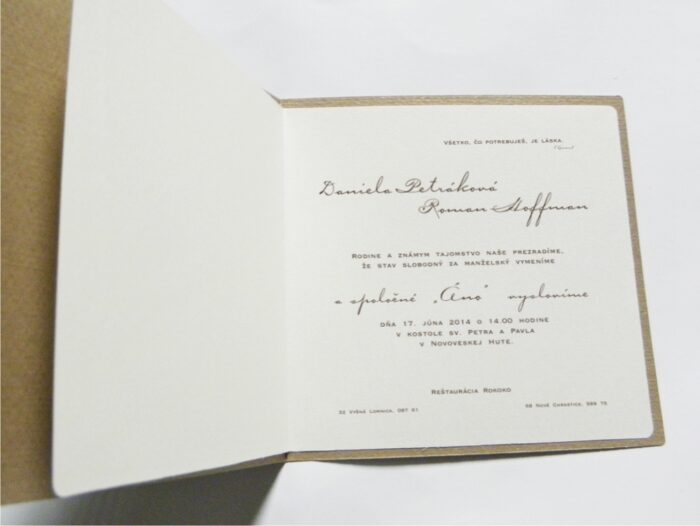 Všetko, čo potrebuješ, je láska.
Daniela Petráková
Roman Hoffman
Rodine a známym tajomstvo naše prezradíme,
že stav slobodný za manželský vymeníme
a spoločné „Áno" vyslovíme
dňa 17. júna 2014 o 14.00 hodine
v kostole sv. Petra a Pavla
v Novoveskej Hute.
Reštaurácia Rokoko
32 Vyšná Lomnica, 087 61
68 Nové